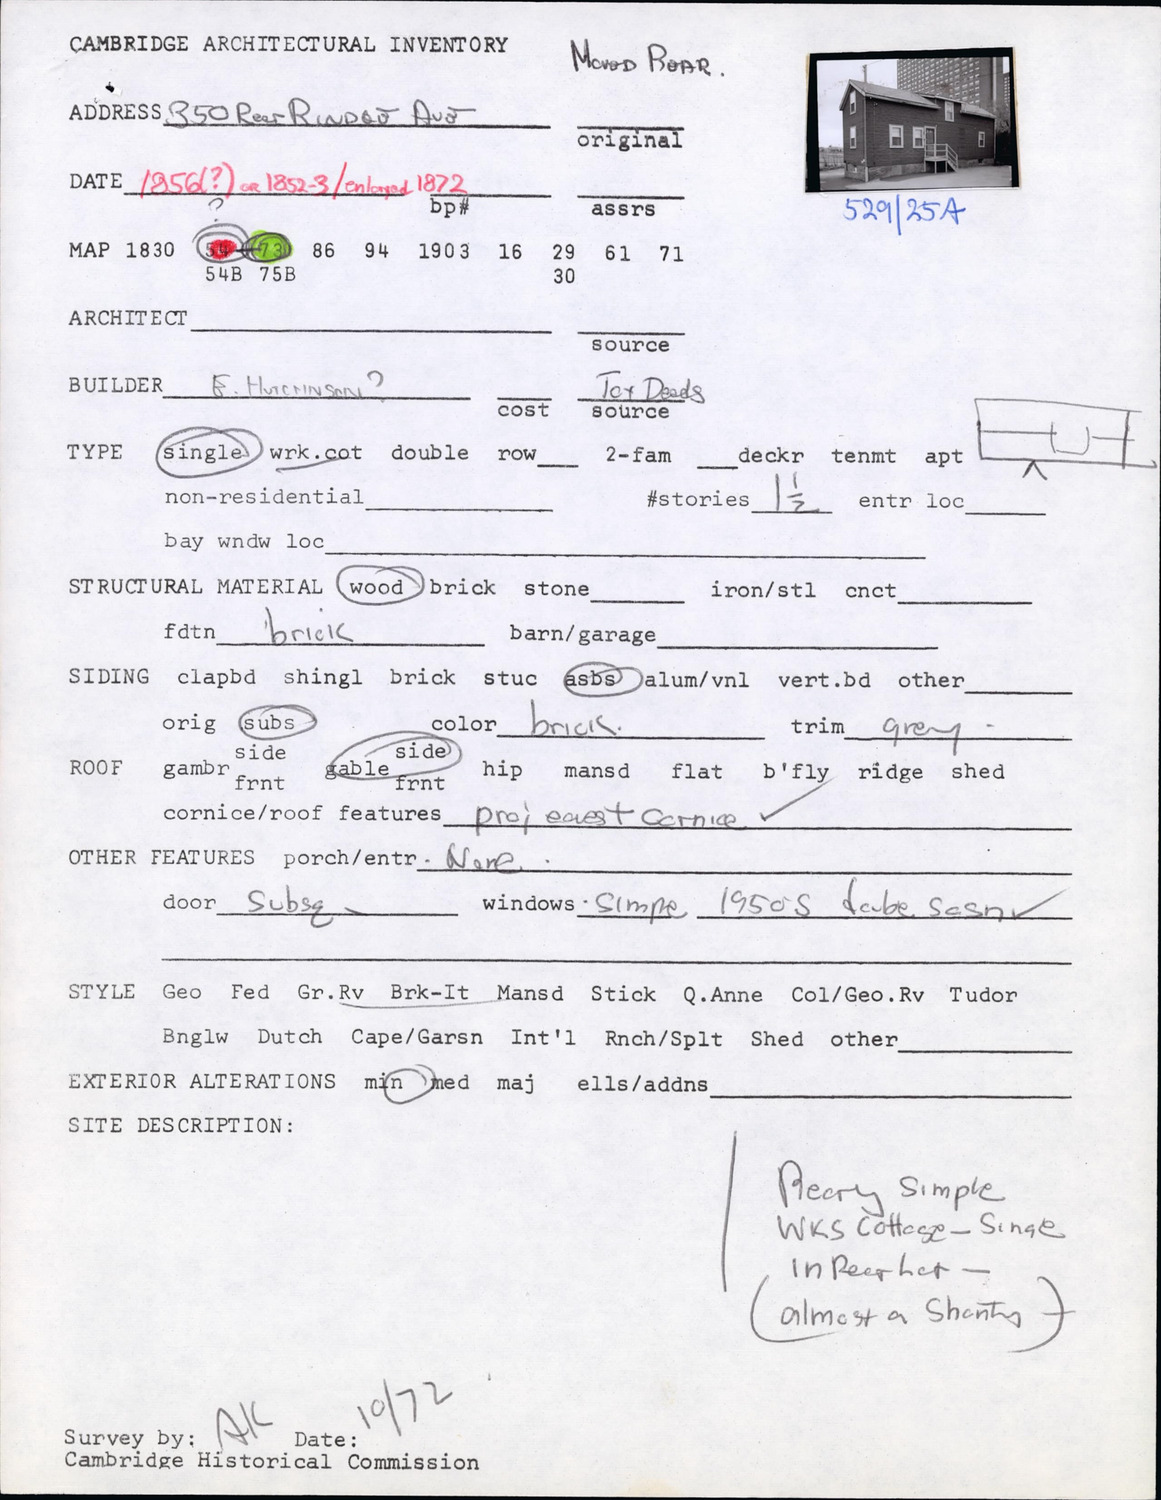 CAMBRIDGE ARCHITECTURAL INVENTORY
Moved Rear.
ADDRESS 350 Rear Rindge Ave
original
529/25A
DATE 1856(?) or 1852-3/enlarged 1872
?
bp# assrs
MAP 1830 54 73 86 94 1903 16 29 61 71
54B 75B 30
ARCHITECT
source
BUILDER E. Hutchinson? Tax Deeds
cost source
TYPE single wrk.cot double row 2-fam deckr tenmt apt
non-residential #stories 1½ entr loc
bay wndw loc
STRUCTURAL MATERIAL wood brick stone iron/stl cnct
fdtn brick barn/garage
SIDING clapbd shingl brick stuc asbs alum/vnl vert.bd other
orig subs color brick. trim grey
side side
ROOF gambr gable hip mansd flat b'fly ridge shed
frnt frnt
cornice/roof features proj eaves + cornice
OTHER FEATURES porch/entr None
door Subsq windows Simple 1950s sash
STYLE Geo Fed Gr.Rv Brk-It Mansd Stick Q.Anne Col/Geo.Rv Tudor
Bnglw Dutch Cape/Garsn Int'l Rnch/Splt Shed other
EXTERIOR ALTERATIONS min med maj ells/addns
SITE DESCRIPTION:
Simple
WKS Cottage - Single
In Rear Lot —
(almost a Shanty)
Survey by: AK Date: 10/72
Cambridge Historical Commission